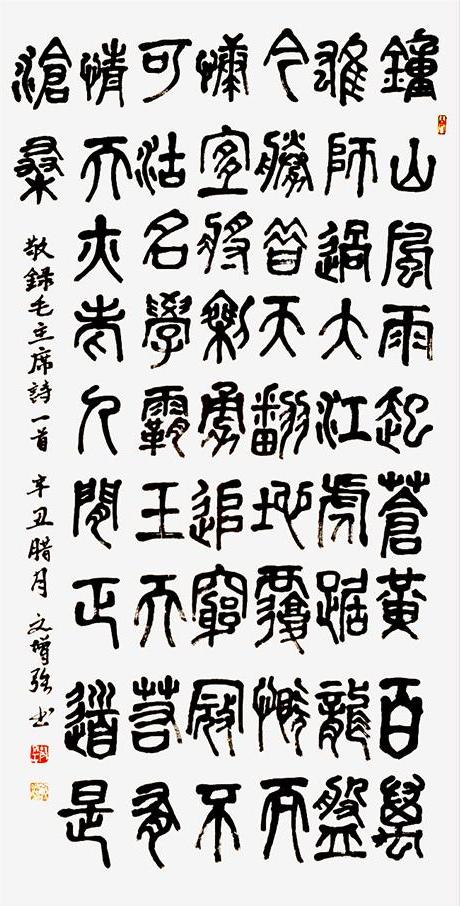 鐘山風雨起蒼黃百萬
雄師過大江虎踞龍盤
今勝昔天翻地覆慨而
慷宜將剩勇追窮寇不
可沽名學霸王天若有
情天亦老人間正道是
滄桑
敬録毛主席詩一首 辛丑腊月 文增强书